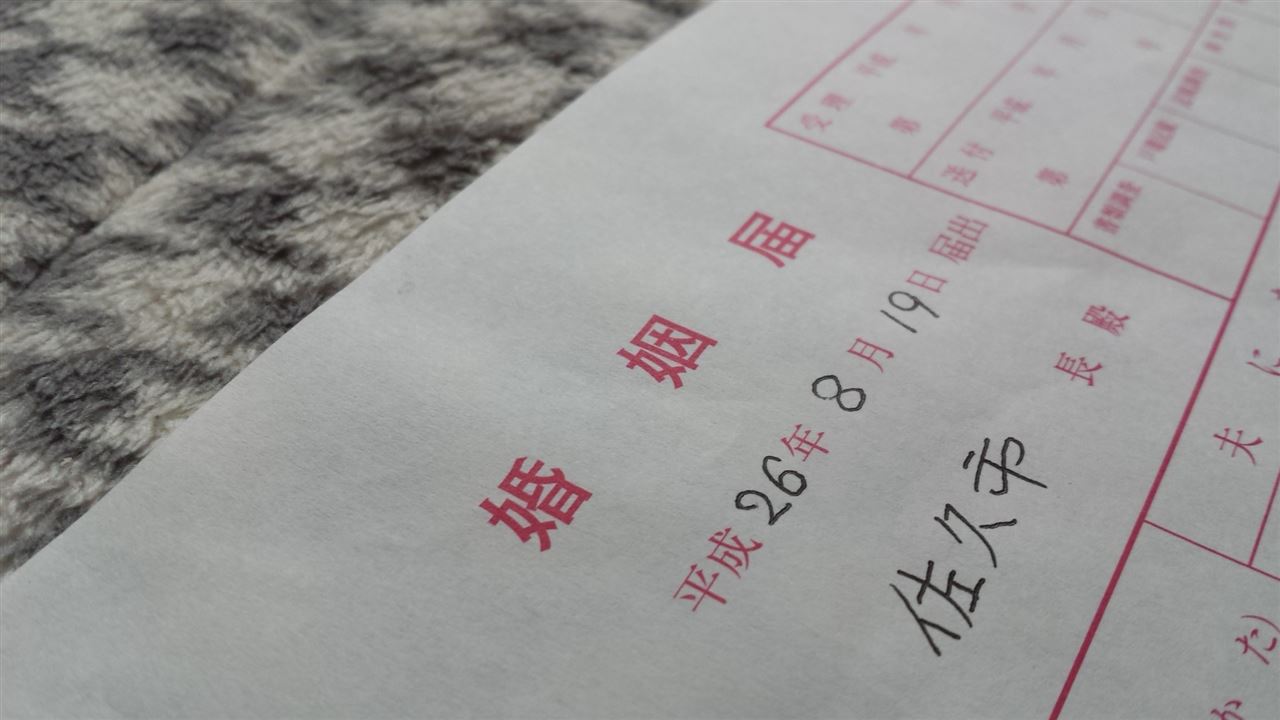 婚姻届
平成26年8月19日届出
佐久市 長殿
受理 平成 年 月
第
送付 平成 年 月 日
第 号
書類調査
夫